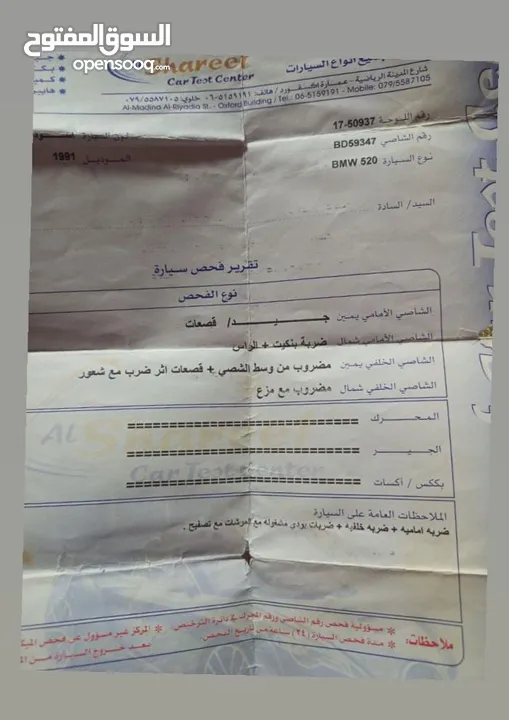 السوق المفتوح
opensooq.com
Shareet
Car Test Center
جميع أنواع السيارات
شارع المدينة الرياضية - عمارة اكسفورد / هاتف: ٠٦-٥١٥٩١٩١ خلوي: ٠٧٩/٥٥٨٧١٠٥
Al-Madina Al-Riyadia St. - Oxford Building / Tel.: 06-5159191 - Mobile: 079/5587105
رقم اللوحة 17-50937 لون السيارة
رقم الشاصي BD59347 الموديل 1991
نوع السيارة BMW 520
السيد/ السادة
تقرير فحص سيارة
نوع الفحص
الشاصي الأمامي يمين جيد/ قصعات
الشاصي الأمامي شمال ضربة بنكيت + الراس
الشاصي الخلفي يمين مضروب من وسط الشصي + قصعات اثر ضرب مع شعور
الشاصي الخلفي شمال مضروب مع مزع
المحرك ================================
الجير ================================
بككس / أكسات ================================
AL Shareet
Car Test Center
الملاحظات العامة على السيارة
ضربه اماميه + ضربه خلفيه + ضربات بودي مشغوله مع الفرشات مع تصفيح .
ملاحظات:
* مسؤولية فحص رقم الشاصي ورقم المحرك في دائرة الترخيص
* مدة فحص السيارة (٢٤) ساعة من تاريخ الفحص
* المركز غير مسؤول عن فحص
بعد خروج السيارة من